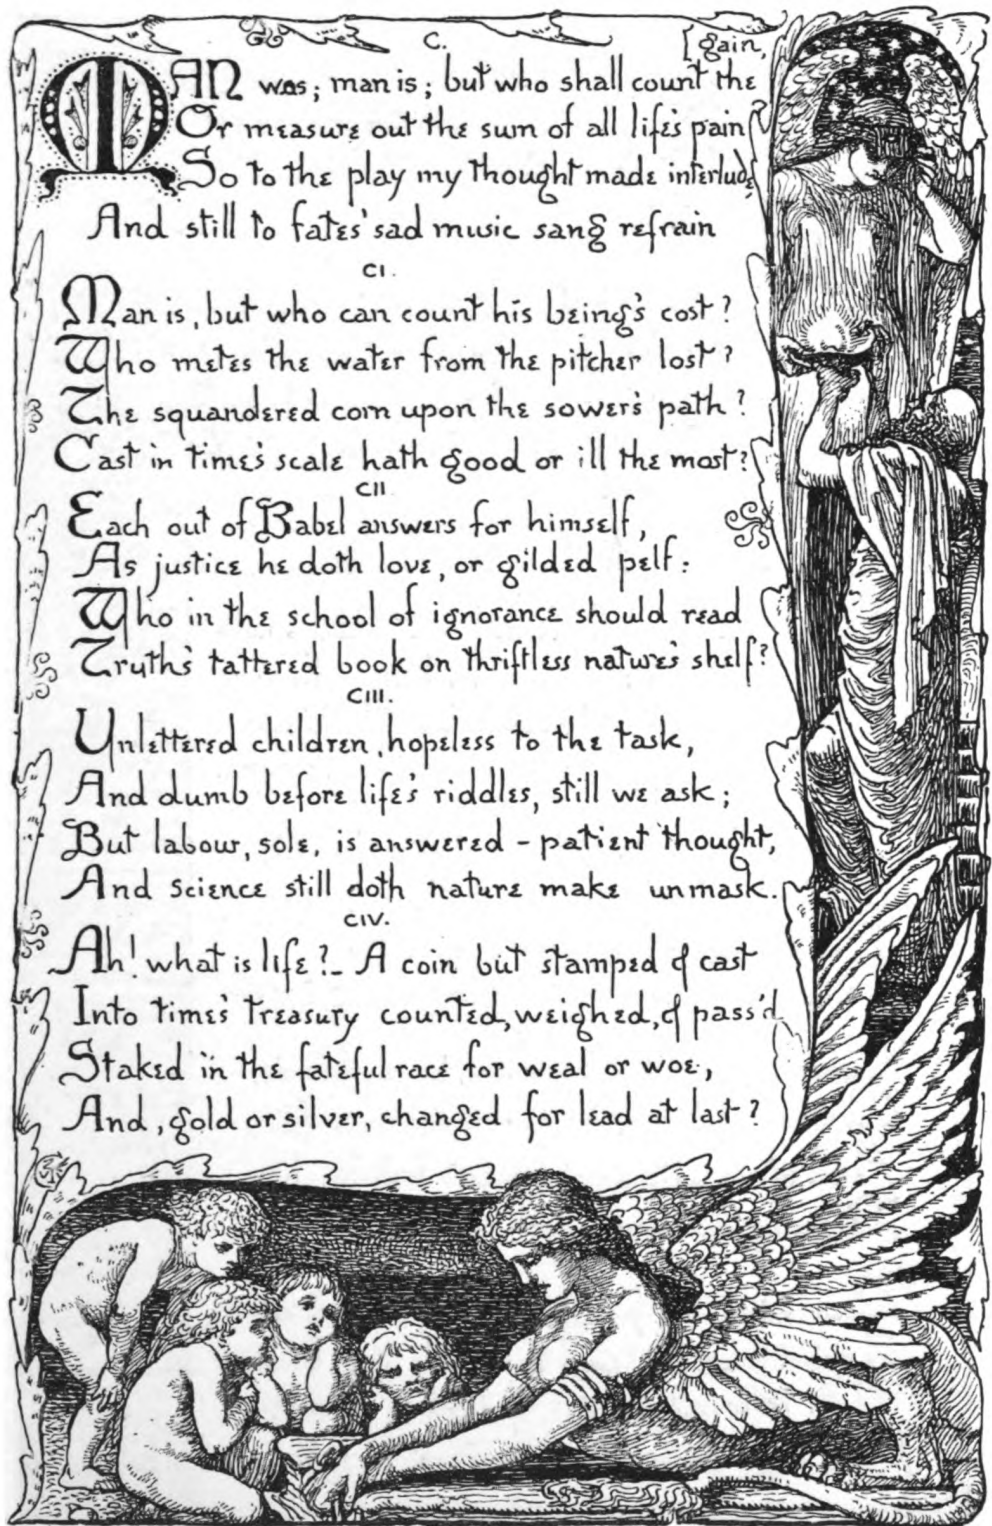 C.
MAN was; man is; but who shall count the [gain,
Or measure out the sum of all life's pain?
So to the play my thought made interlude,
And still to fates' sad music sang refrain
CI.
Man is, but who can count his being's cost?
Who metes the water from the pitcher lost?
The squandered corn upon the sower's path?
Cast in time's scale hath good or ill the most?
CII
Each out of Babel answers for himself,
As justice he doth love, or gilded pelf:
Who in the school of ignorance should read
Truth's tattered book on thriftless nature's shelf?
CIII.
Unlettered children, hopeless to the task,
And dumb before life's riddles, still we ask;
But labour, sole, is answered - patient thought,
And Science still doth nature make unmask.
CIV.
Ah! what is life?- A coin but stamped & cast
Into time's treasury counted, weighed, & pass'd
Staked in the fateful race for weal or woe,
And, gold or silver, changed for lead at last?